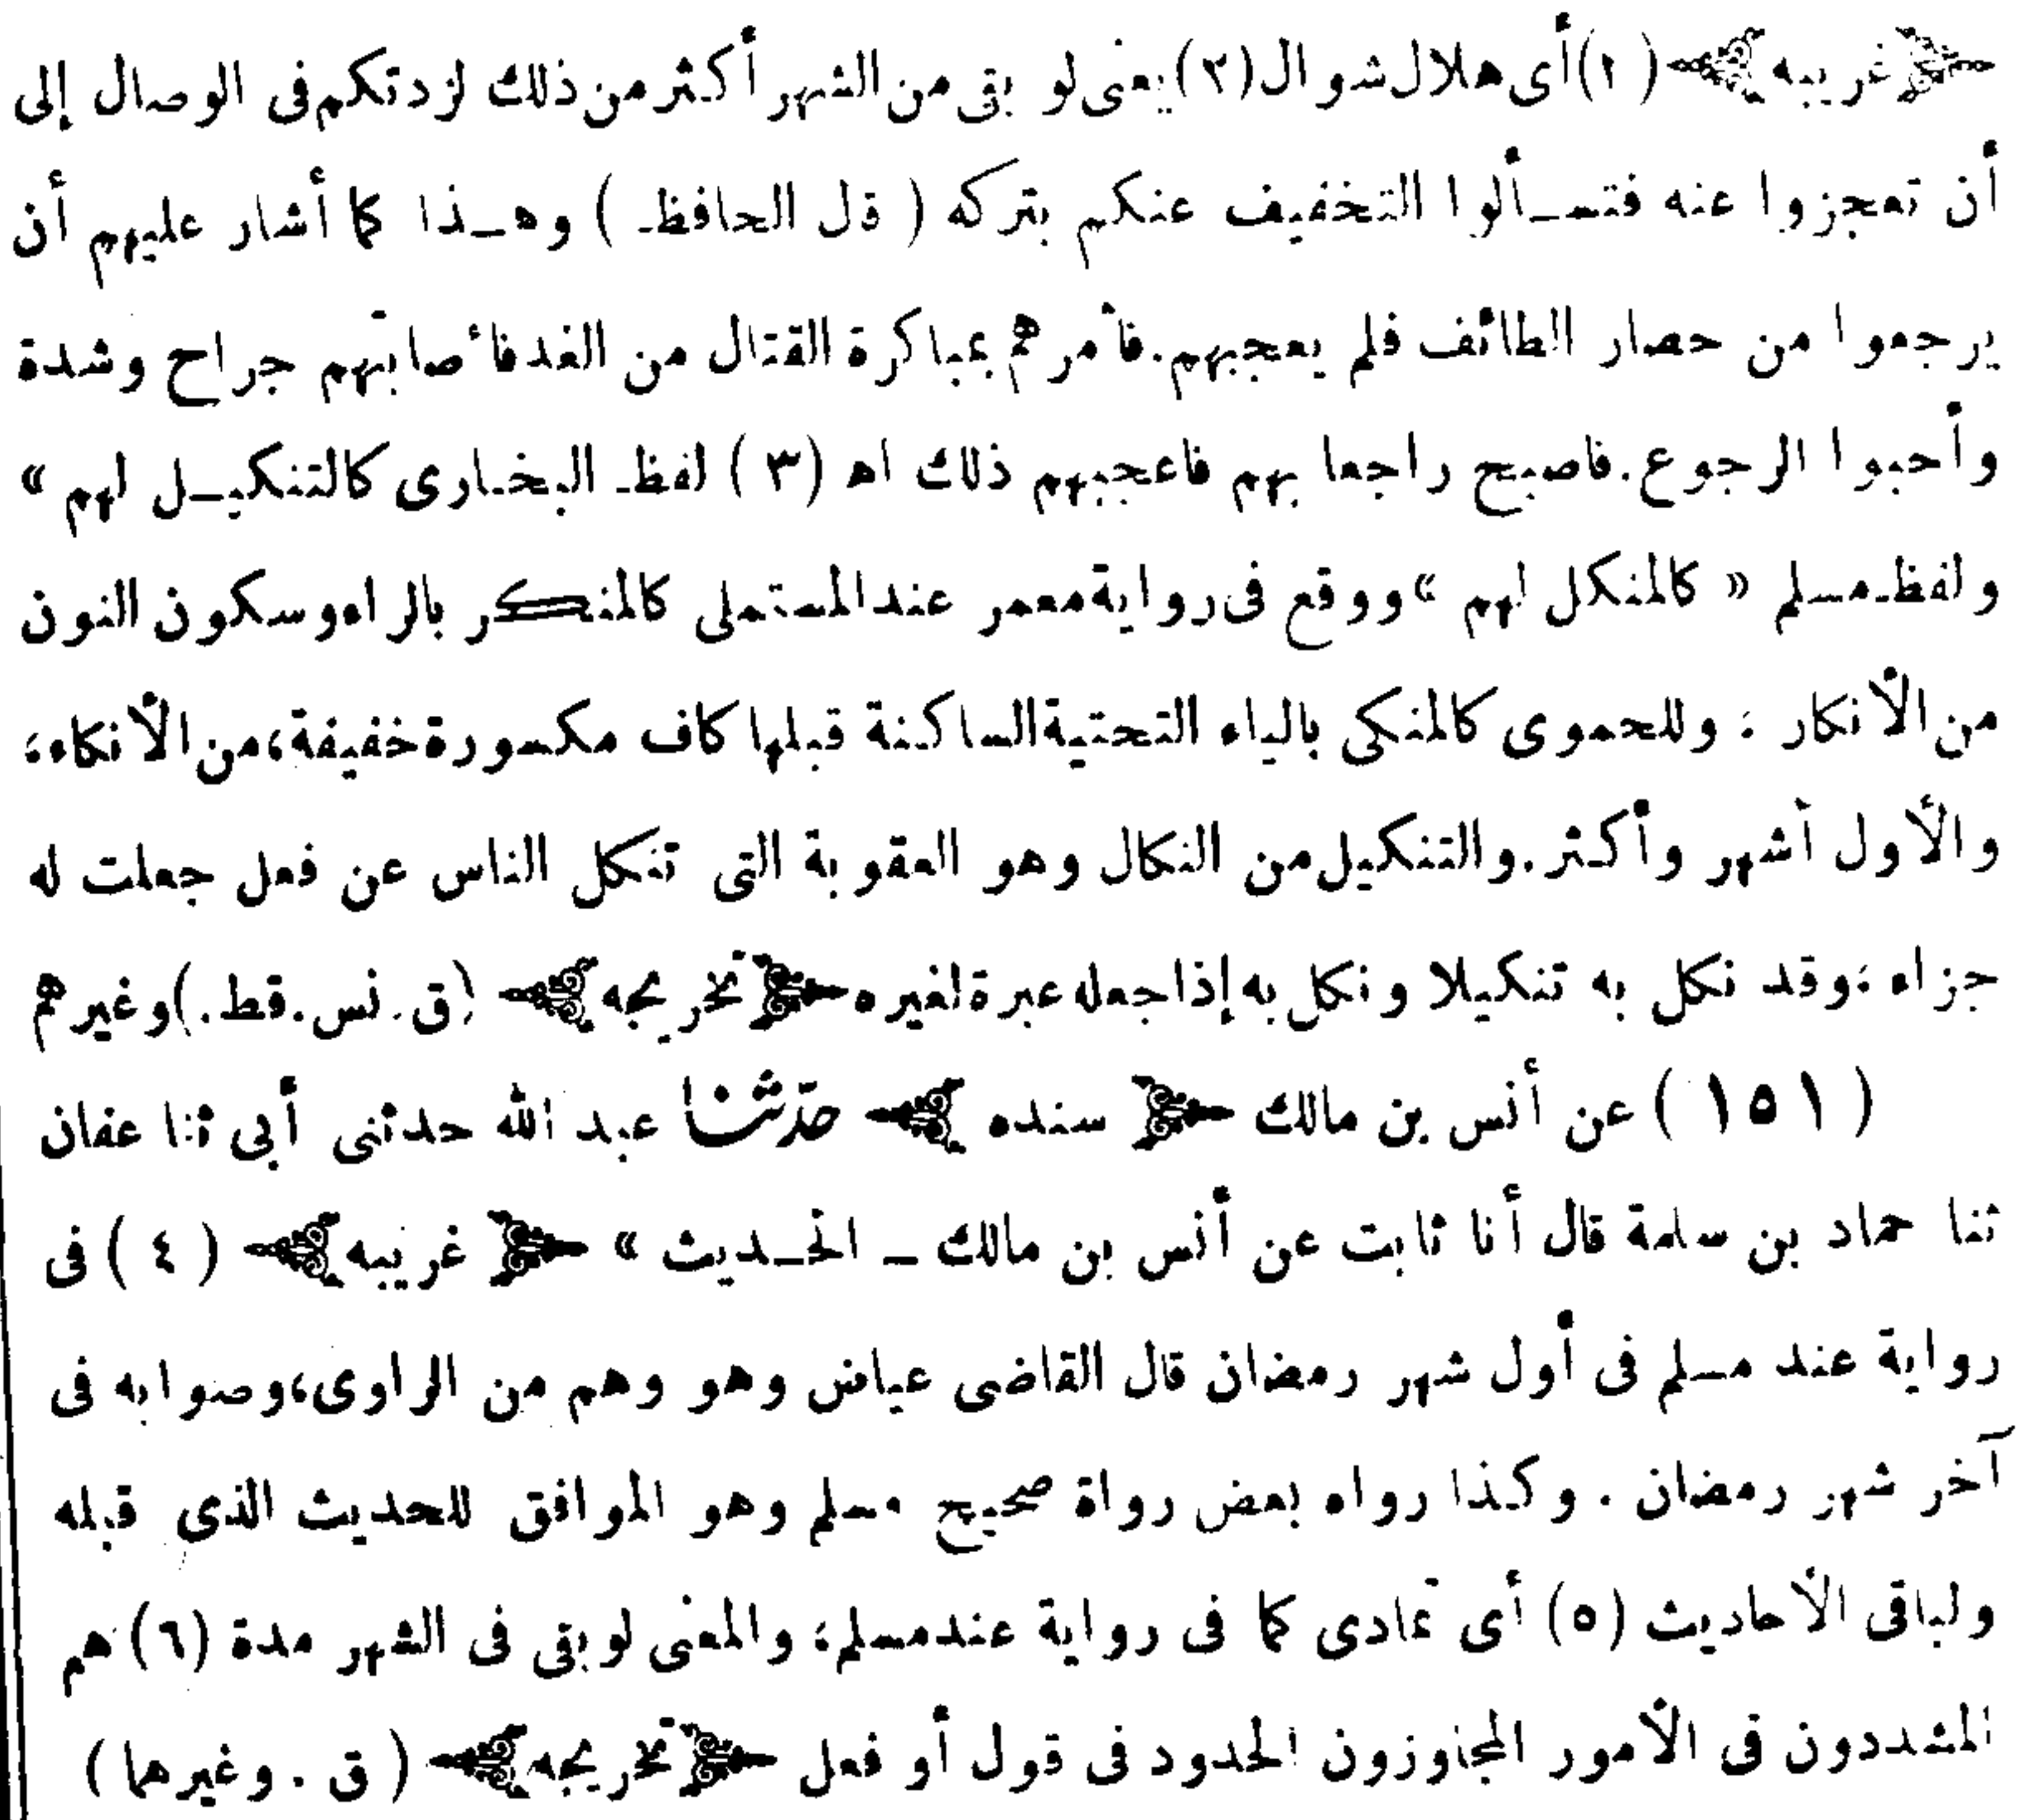 ﴿غريبه﴾ (١) أى هلال شوال (٢) يعنى لو بقى من الشهر أكثر من ذلك لزدتكم فى الوصال إلى
أن تعجزوا عنه فتسألوا التخفيف عنكم بتركه ( قل الحافظ ) وهـذا كما أشار عليهم أن
يرجعوا من حصار الطائف فلم يعجبهم. فأمرهم بمباكرة القتال من الغد فأصابتهم جراح وشدة
وأحبوا الرجوع. فاصبح راجعا بهم فاعجبهم ذلك اه (٣) لفظ البخارى كالتنكيـل لهم »
ولفظ مسلم « كالمنكل لهم » ووقع فى رواية معمر عند المستملى كالمنكر بالراء وسكون النون
من الأنكار ؛ وللحموى كالمنكى بالياء التحتية الساكنة قبلها كاف مكسورة خفيفة، من الأنكاء،
والأول أشهر وأكثر. والتنكيل من النكال وهو العقوبة التى تنكل الناس عن فعل جعلت له
جزاء ، وقد نكل به تنكيلا ونكل به إذا جعله عبرة لغيره ﴿تخريجه﴾ (ق. نس. قط.) وغيرهم
( ١٥١ ) عن أنس بن مالك ﴿ سنده ﴾ حدّثنا عبد الله حدثنى أبى ثنا عفان
ثنا حماد بن سلمة قال أنا ثابت عن أنس بن مالك ــ الحـديث » ﴿ غريبه ﴾ ( ٤ ) فى
رواية عند مسلم فى أول شهر رمضان قال القاضى عياض وهو وهم من الراوى، وصوابه فى
آخر شهر رمضان . وكذا رواه بعض رواة صحيح مسلم وهو الموافق للحديث الذى قبله
ولباقى الأحاديث (٥) أى تمادى كما فى رواية عند مسلم، والمعنى لو بقى فى الشهر مدة (٦) هم
المشددون فى الأمور المجاوزون الحدود فى قول أو فعل ﴿تخريجه﴾ ( ق . وغيرهما )